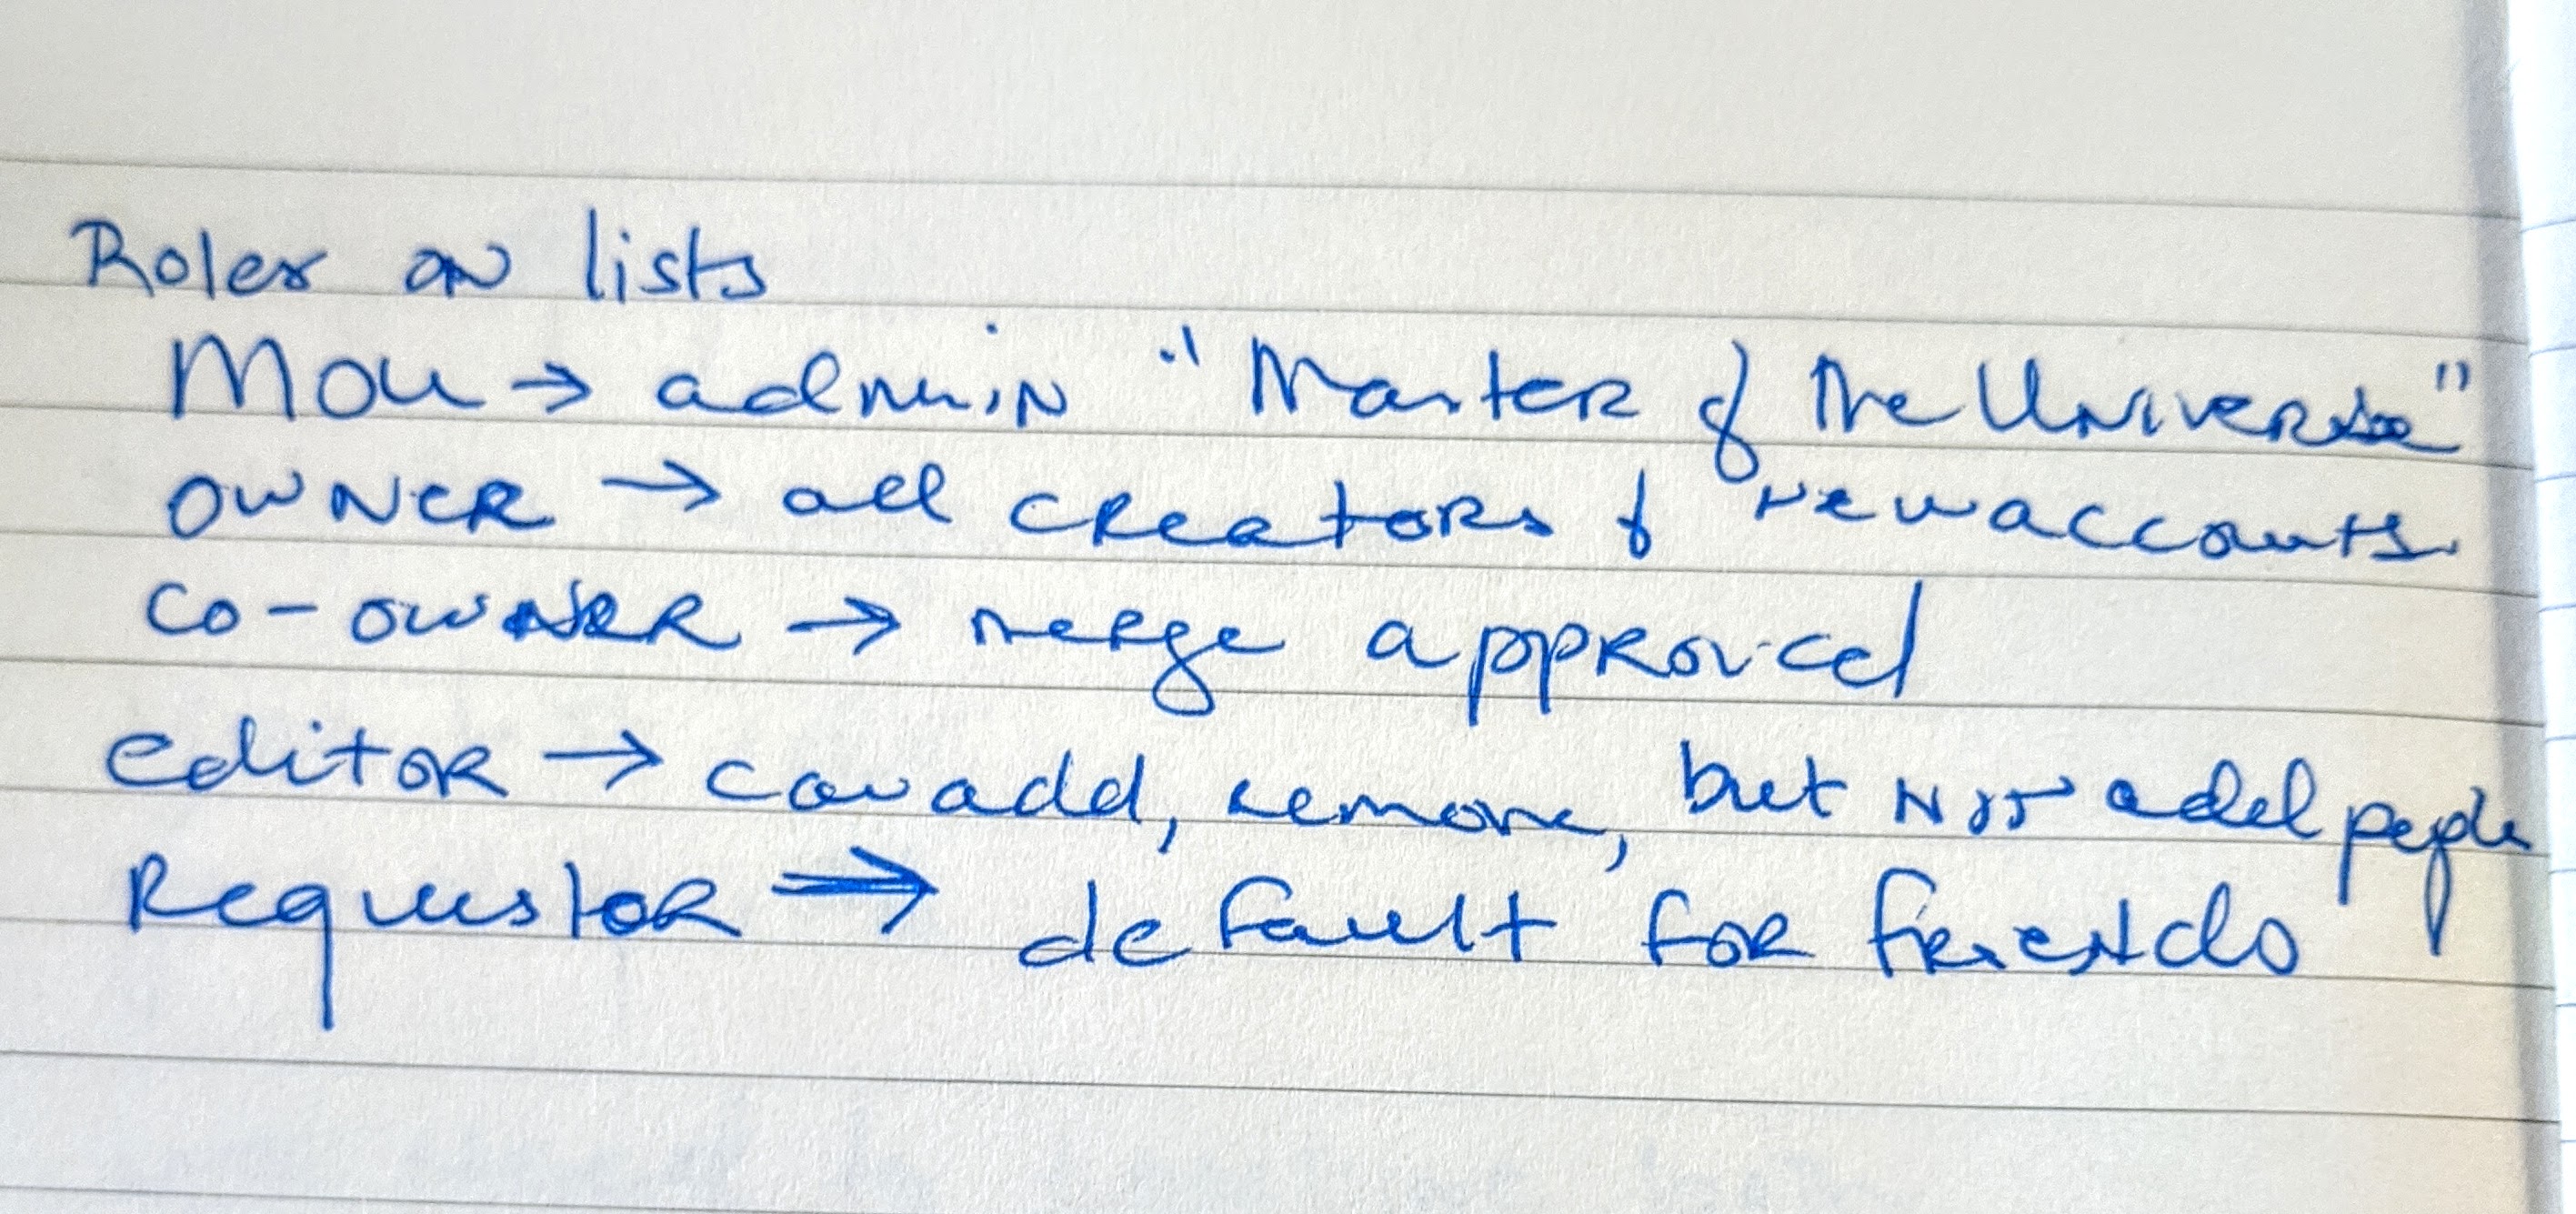 Roles on lists
MOU → admin "Master of the Universe"
owner → all creators of new accounts.
co-owner → merge approval
editor → can add, remove, but not add people
Requestor ⇒ default for friends